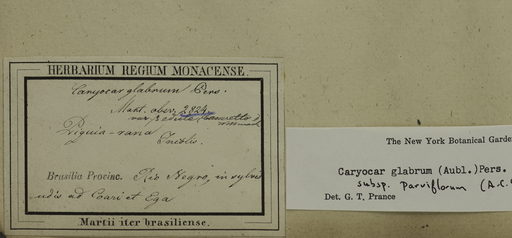 HERBARIUM REGIUM MONACENSE.
Caryocar glabrum Pers.
Mart. obs. 2824
var.
Piquia-rana
Incolis.
Brasilia Provinc. Rio Negro, in sylvis
udis ad Coari et Ega
Martii iter brasiliense.
The New York Botanical Garde
Caryocar glabrum (Aubl.) Pers.
subsp. parviflorum (A.C.
Det. G. T. Prance